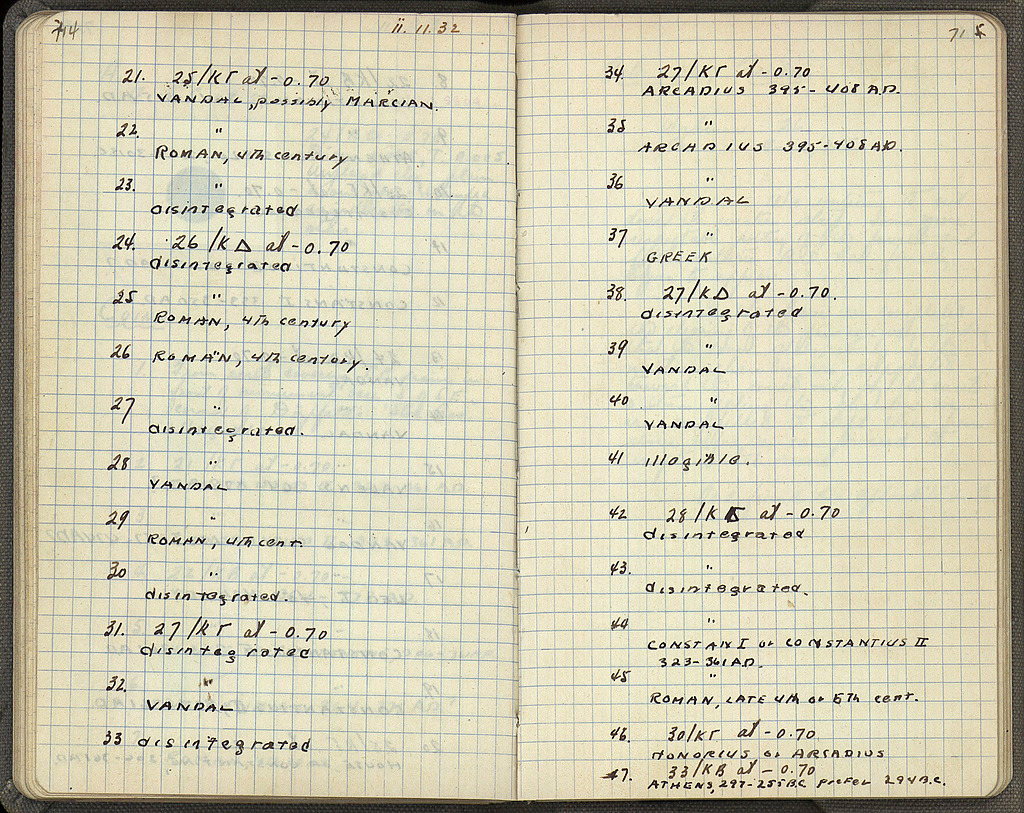 714
ii. 11. 32
21. 25/ΚΓ at -0.70
VANDAL, possibly MARCIAN.
22. "
ROMAN, 4th century
23. "
disintegrated
24. 26/ΚΔ at -0.70
disintegrated
25 "
ROMAN, 4th century
26 "
ROMAN, 4th century.
27 "
disintegrated.
28 "
VANDAL
29 "
ROMAN, 4th cent.
30 "
disintegrated.
31. 27/ΚΓ at -0.70
disintegrated
32. "
VANDAL
33 "
disintegrated
715
34. 27/ΚΓ at -0.70
ARCADIUS 395-408 A.D.
35 "
ARCADIUS 395-408 A.D.
36 "
VANDAL
37 "
GREEK
38. 27/ΚΔ at -0.70.
disintegrated
39 "
VANDAL
40 "
VANDAL
41 illegible.
42 28/Κ at -0.70
disintegrated
43. "
disintegrated.
44 "
CONSTAN I or CONSTANTIUS II
323-361 A.D.
45 "
ROMAN, LATE 4th or 5th cent.
46. 30/ΚΓ at -0.70
HONORIUS or ARCADIUS
47. 33/ΚΒ at -0.70
ATHENS, 297-255 B.C. prefer 294 B.C.